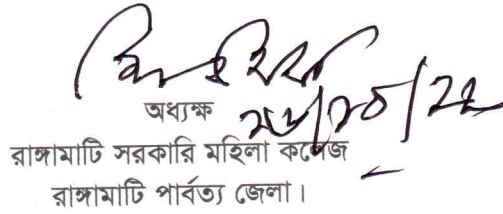 অধ্যক্ষ
রাঙ্গামাটি সরকারি মহিলা কলেজ
রাঙ্গামাটি পার্বত্য জেলা।